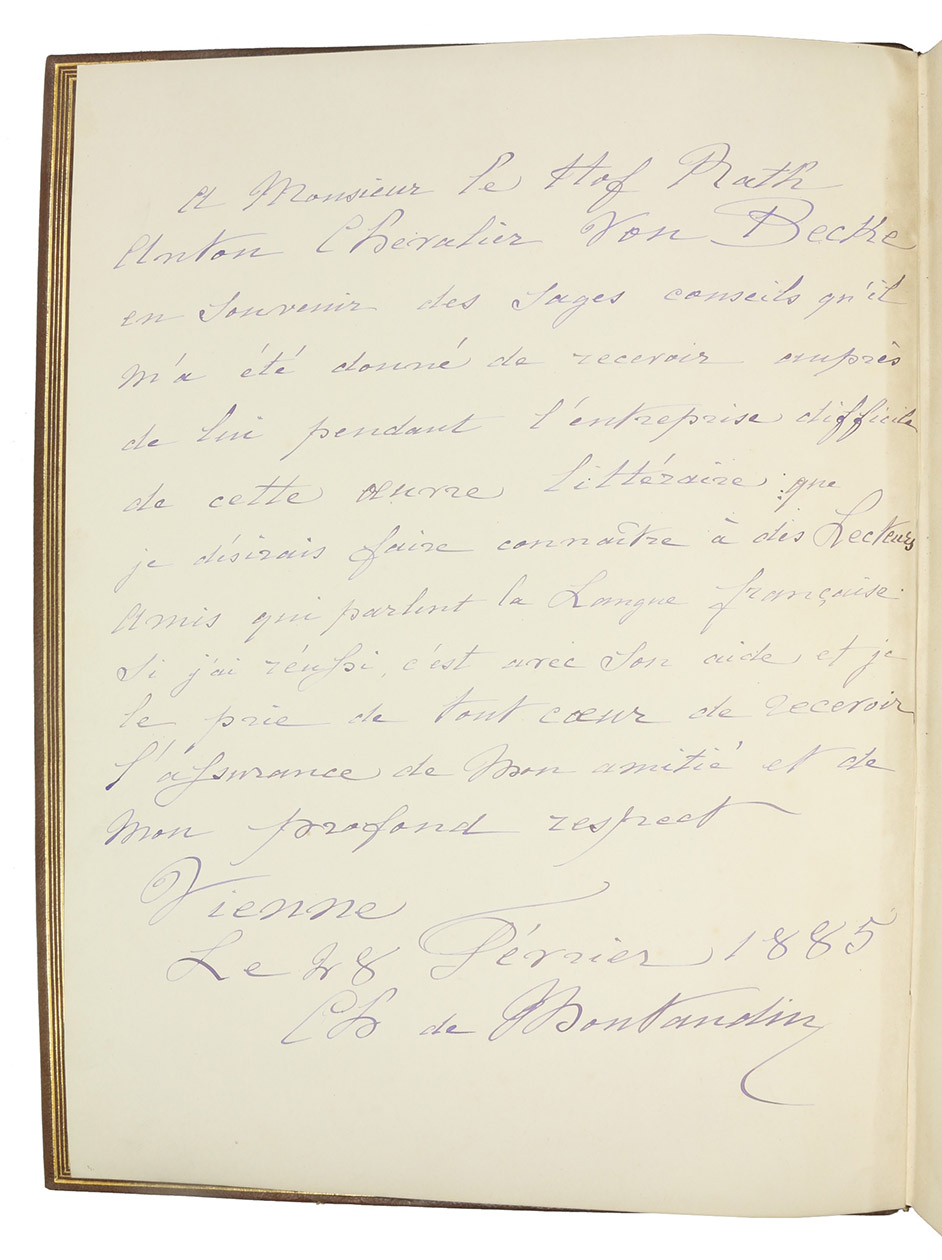 A Monsieur le Hof Rath
Anton Chevalier Von Becke
en souvenir des sages conseils qu'il
m'a été donné de recevoir auprès
de lui pendant l'entreprise difficile
de cette œuvre littéraire que
je désirais faire connaître à des Lecteurs
Amis qui parlent la Langue françoise.
Si j'ai réussi, c'est avec Son aide et je
le prie de tout cœur de recevoir
l'assurance de Mon amitié et de
Mon profond respect
Vienne
Le 28 Février 1885
Ch de Montandin